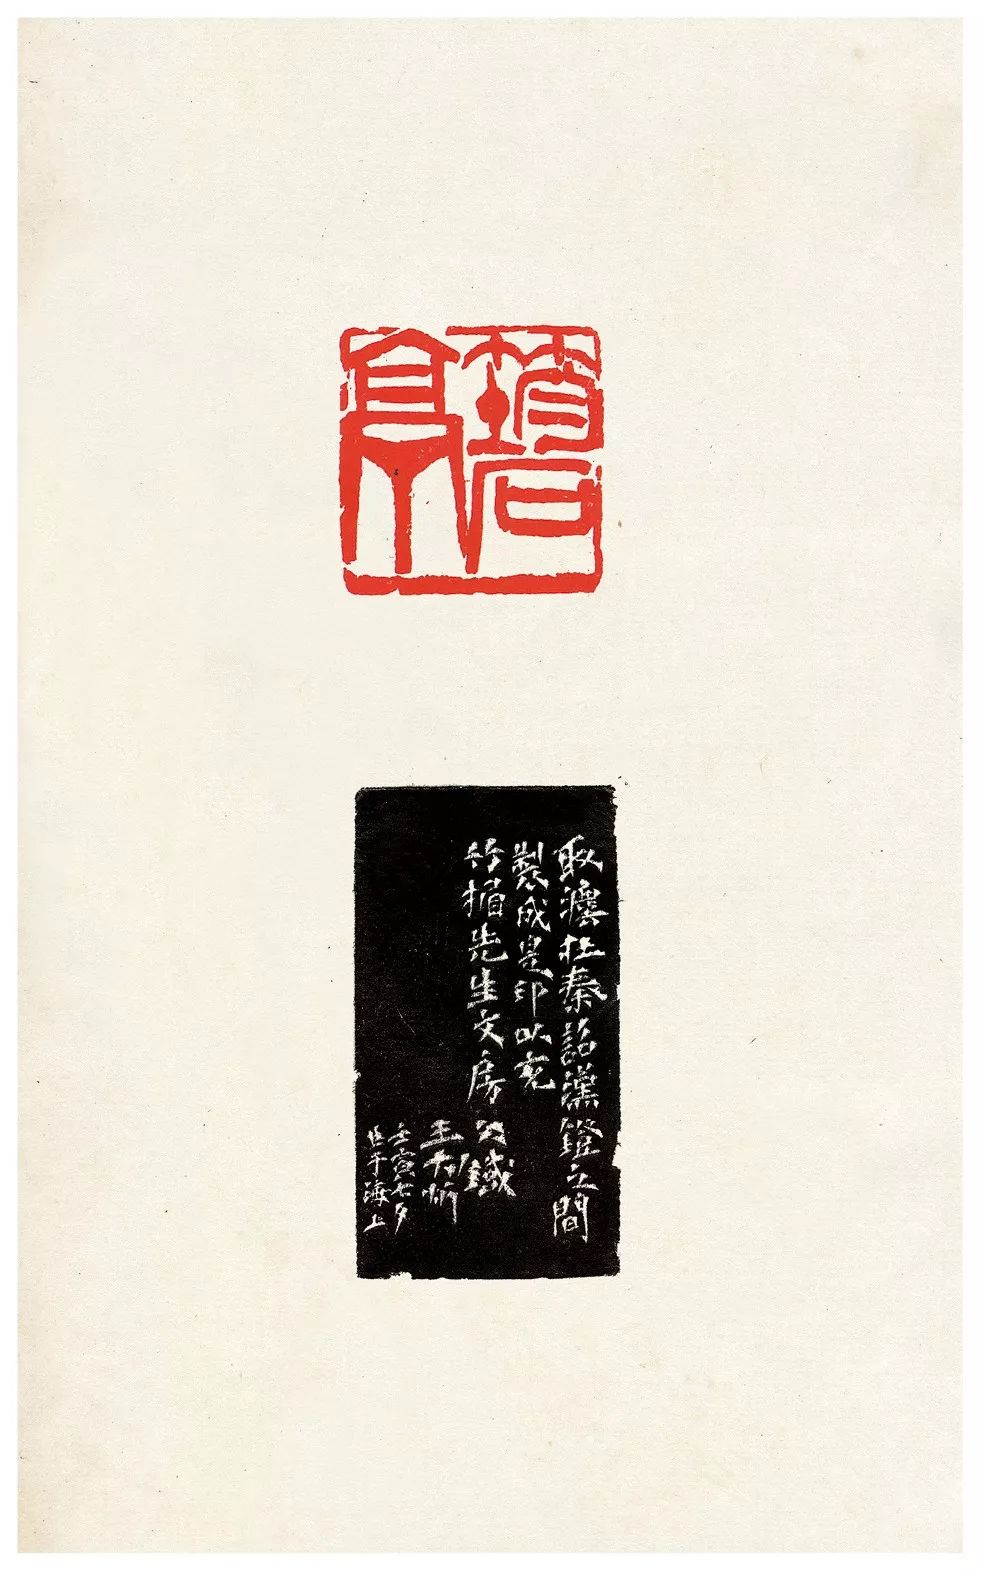 亭
取灋在秦詔漢鐙之間
製成是印以充
竹楣先生文房 冰鐵
王大炘
壬寅七夕
于海上